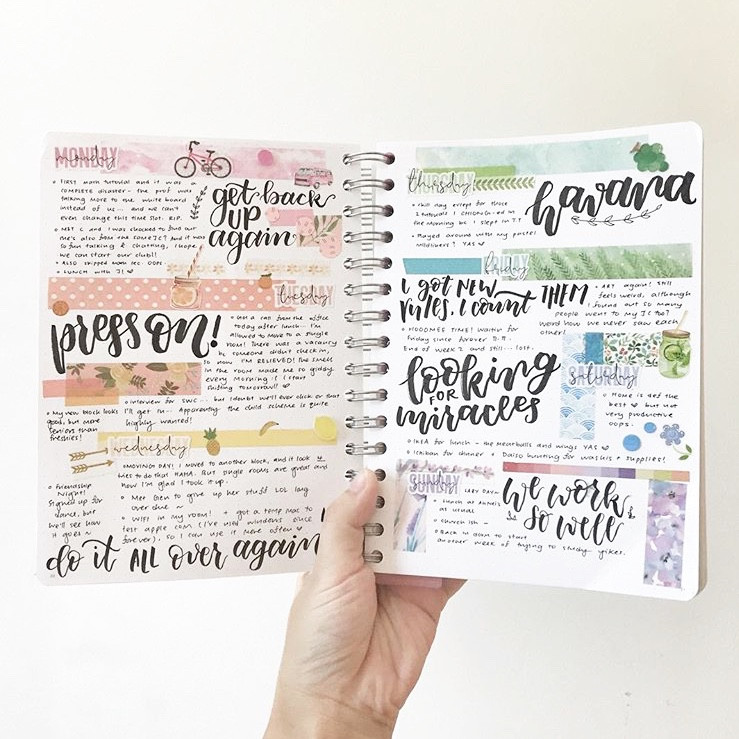 MONDAY
monday
• FIRST math tutorial and it was a
COMPLETE disaster - the prof was
talking more to the white board
instead of us ... and we can't
even change this time slot. R.I.P.
• MET C and I was shocked to find out
me's also from the same JC! And it was
so fun talking & chatting, I hope
we can start our club!!
• ALSO skipped math lec. OOPS.
• LUNCH with J! ♡
get back
up
again
TUESDAY
tuesday
press on!
• Got a call from the office
today after lunch... I'm
allowed to move to a single
room! There was a vacancy
bc someone didn't check in,
so now I'm RELIEVED! The smell
in the room made me so giddy
every morning :( I start
shifting tomorrow!! ♡
• Interview for SWC ... but I doubt we'll ever click or that
I'll get in... Apparently the child scheme is quite
highly wanted!
• My new block looks
good, but more
seniors than
freshies!
WEDNESDAY
wednesday
• MOVING DAY! I moved to another block, and it took 12
trips to do that HAHA. But single rooms are great and
now I'm glad I took it up.
• Met Ben to give up her stuff LOL long
over due ~
• WIFI in my room! + got a temp mac to
test apple coms (I've used windows since
forever), so I can use it more often ♡
• Friendship
Night!
Signed up for
dance, but
we'll see how
it goes ~
do it ALL over again!
THURSDAY
thursday
havana
• Chill day except for those
2 tutorials I chiong-ed in
the morning bc I slept in T.T
• Played around with my pastel
mildliners! YAS ♡
FRIDAY
friday
I got NEW
rules, I count
THEM
• ART again! Still
feels weird, although
I found out so many
people went to my JC too?
Weird how we never saw each
other!
• HOOOMEE TIME! Waitin for
Friday since forever D.A..
End of week 2 and still... lost.
SATURDAY
saturday
looking
FOR
miracles
• Home is def the
best ♡ but not
very productive
oops.
• IKEA for lunch - the meatballs and wings YAS ♡
• Ichiban for dinner + Daiso hunting for washis + supplies!
SUNDAY
sunday
LAZY DAY~
• Lunch at Ahma's
as usual
• Church ish ~
• Back to dorm to start
another week of trying to study yikes.
we work
so well